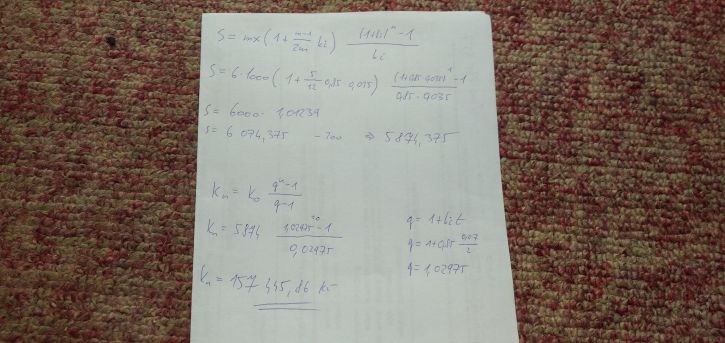 S = mx(1 + \frac{m-1}{2m} ki) \frac{(1+ki)^n - 1}{ki}
S = 6·1000(1 + \frac{5}{12} 0,85 · 0,035) \frac{(1+0,85·0,035)^1 - 1}{0,85 · 0,035}
S = 6000· 1,01239
S = 6 074,375 - 200 ⇒ 5874,375
K_n = K_0 \frac{q^n - 1}{q - 1}
K_n = 5874 \frac{1,02975^{20} - 1}{0,02975}
K_n = 157 445,86 Kč
q = 1 + kit
q = 1 + 0,85 \frac{0,07}{2}
q = 1,02975